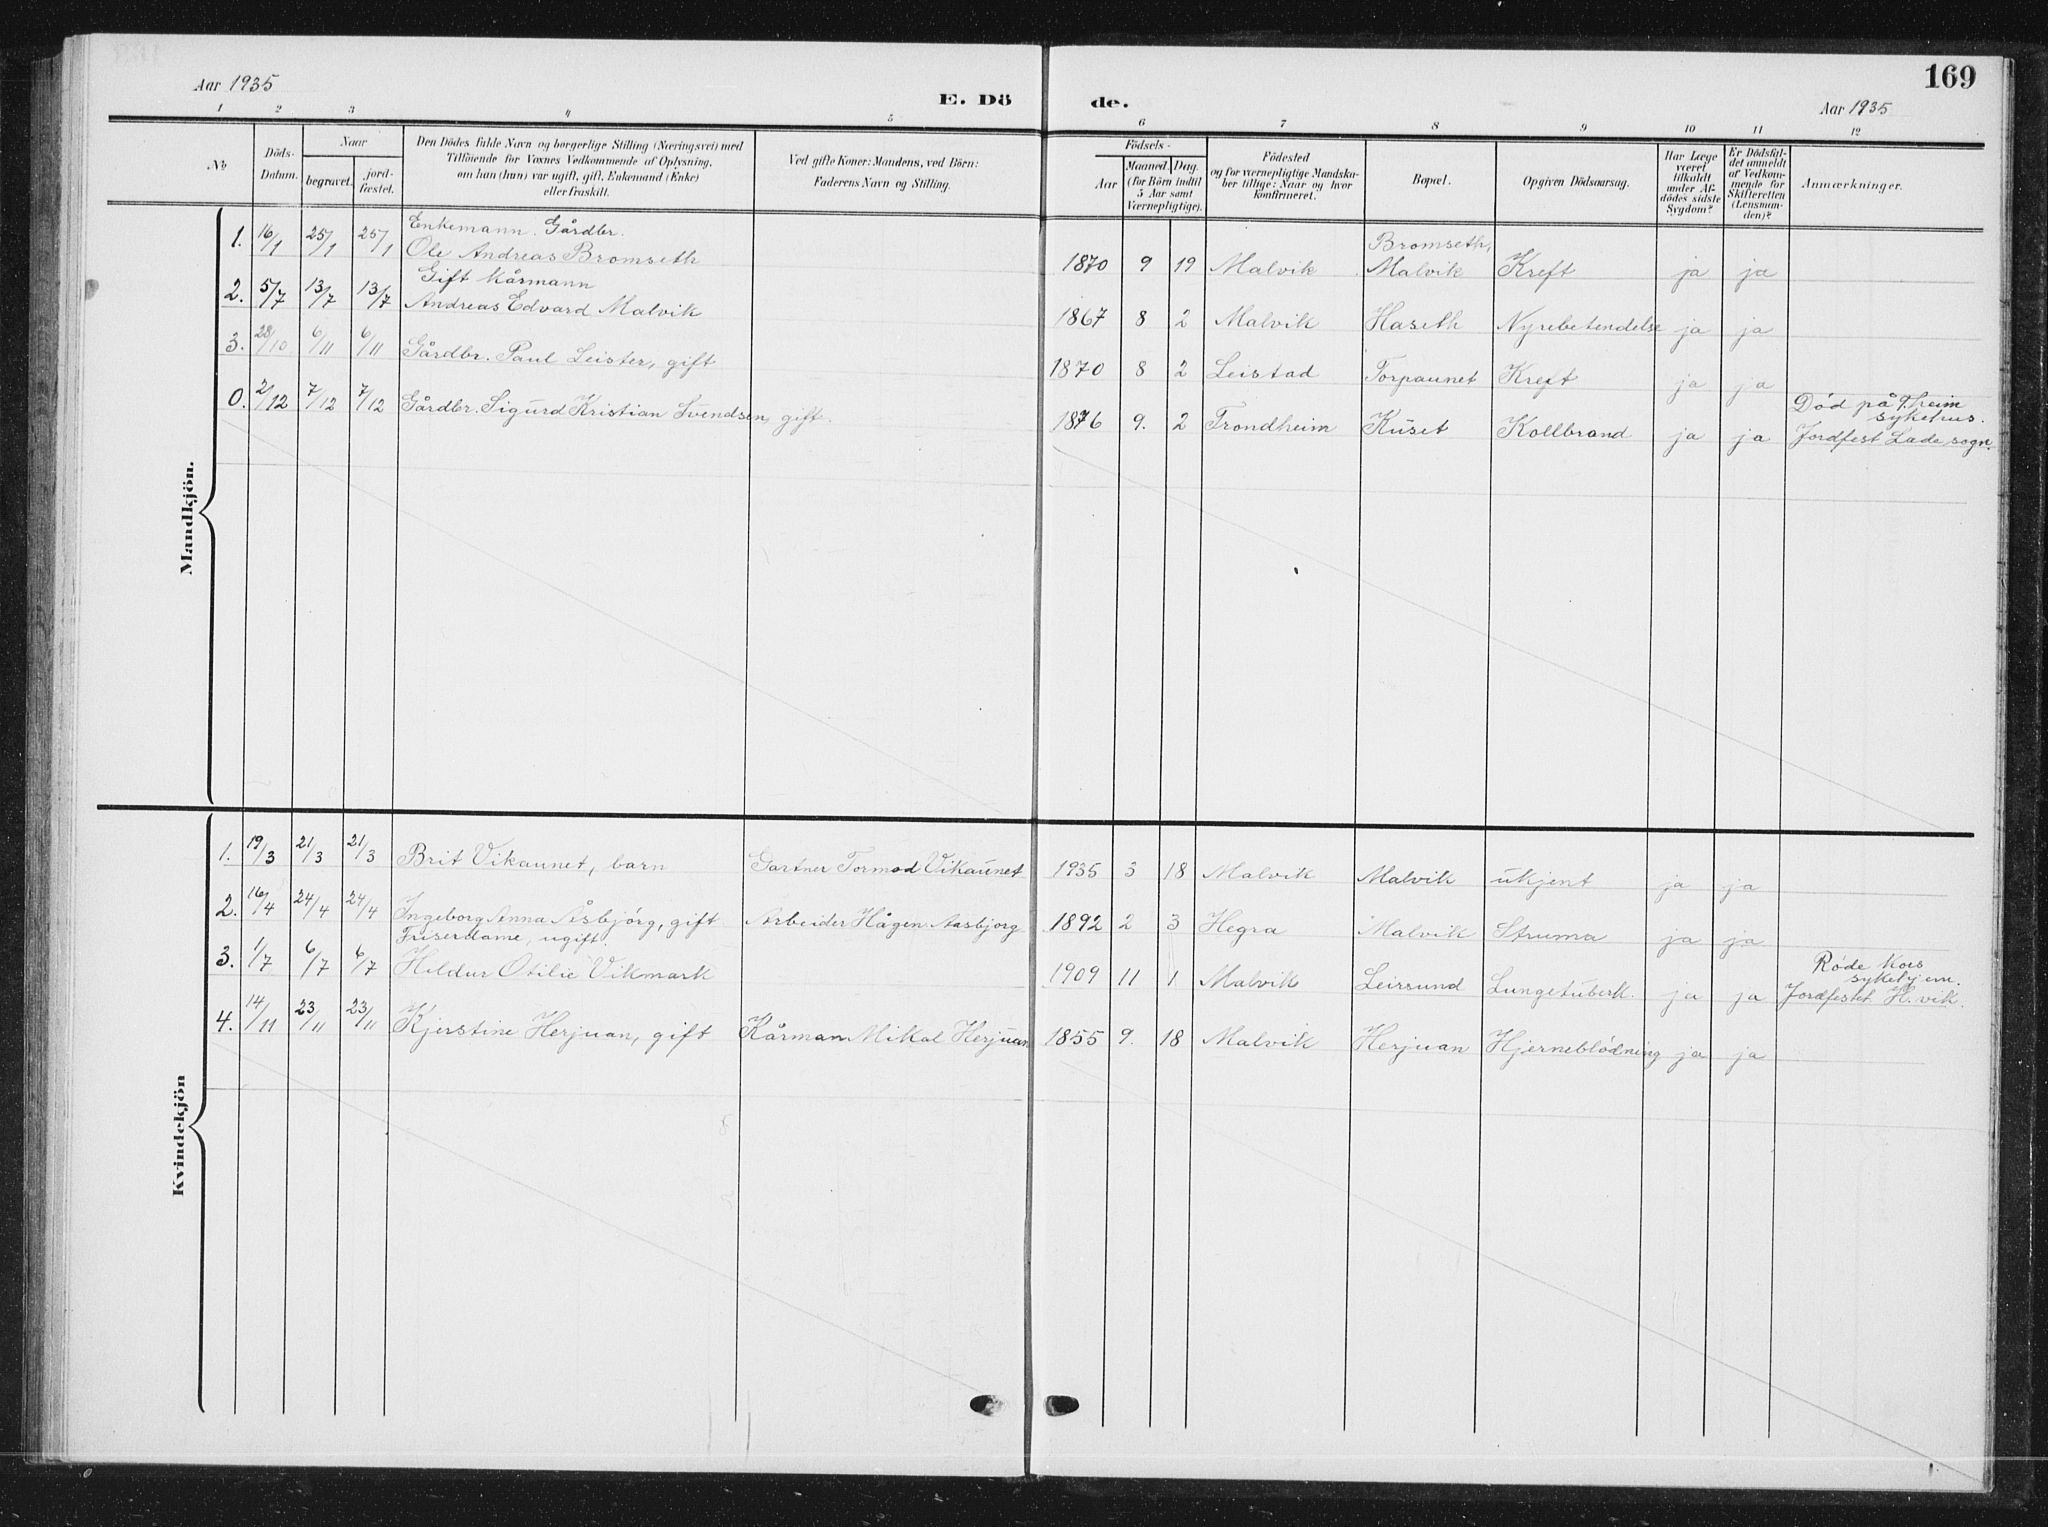 Aar 1935
E. Dö
de.
169
Aar 1935
1 2 3 4 5 6 7 8 9 10 11 12
No
Döds-Datum.
Naar
begravet.
jord-fæstet.
Den Dödes fulde Navn og borgerlige Stilling (Næringsvei) med
Tilföiende for Voxnes Vedkommende af Oplysning,
om han (hun) var ugift, gift, Enkemand (Enke)
eller fraskilt.
Ved gifte Koner: Mandens, ved Börn:
Faderens Navn og Stilling.
Födsels-
Aar
Maaned. Dag.
(for Börn indtil
5 Aar samt
Værnepligtige).
Födested
og for værnepligtige Mandska-
ber tillige: Naar og hvor
konfirmeret.
Bopæl.
Opgiven Dödsaarsag.
Har Læge
været
tilkaldt
under Af-
dödes sidste
Sygdom?
Er Dödsfal-
det anmeldt
af Vedkom-
mende for
Skifteretten
(Lensman-
den)?
Anmærkninger.
Mandkjön.
Enkemann. Gårdbr.
1. 16/1 25/1 25/1 Ole Andreas Bromseth 1870 9 19 Malvik Bromseth, Malvik Kreft ja ja
Gift Kårmann
2. 5/7 13/7 13/7 Andreas Edvard Malvik 1867 8 2 Malvik Haseth Nyrebetendelse ja ja
3. 28/10 6/11 6/11 Gårdbr. Paul Leister, gift 1870 8 2 Leistad Torpaunet Kreft ja ja
0. 2/12 7/12 7/12 Gårdbr. Sigurd Kristian Svendsen, gift. 1876 9. 2 Trondheim Kuset Kollbrand ja ja Död på T.heim
sykehus.
Jordfest Lade sogn.
Kvindekjön
1. 19/3 21/3 21/3 Brit Vikaunet, barn Gartner Tormod Vikaunet 1935 3 18 Malvik Malvik ukjent ja ja
2. 16/4 24/4 24/4 Ingeborg Anna Åsbjörg, gift Arbeider Hågen Aasbjorg 1892 2 3 Hegra Malvik Struma ja ja
Friserdame, ugift.
3. 1/7 6/7 6/7 Hildur Otilie Vikmark 1909 11 1 Malvik Leirsund Lungetuberk. ja ja Röde Kors
sykehjem.
Jordfestet H.vik.
4. 14/11 23/11 23/11 Kjerstine Herjuan, gift Kårman Mikal Herjuan 1855 9. 18 Malvik Herjuan Hjerneblödning ja ja